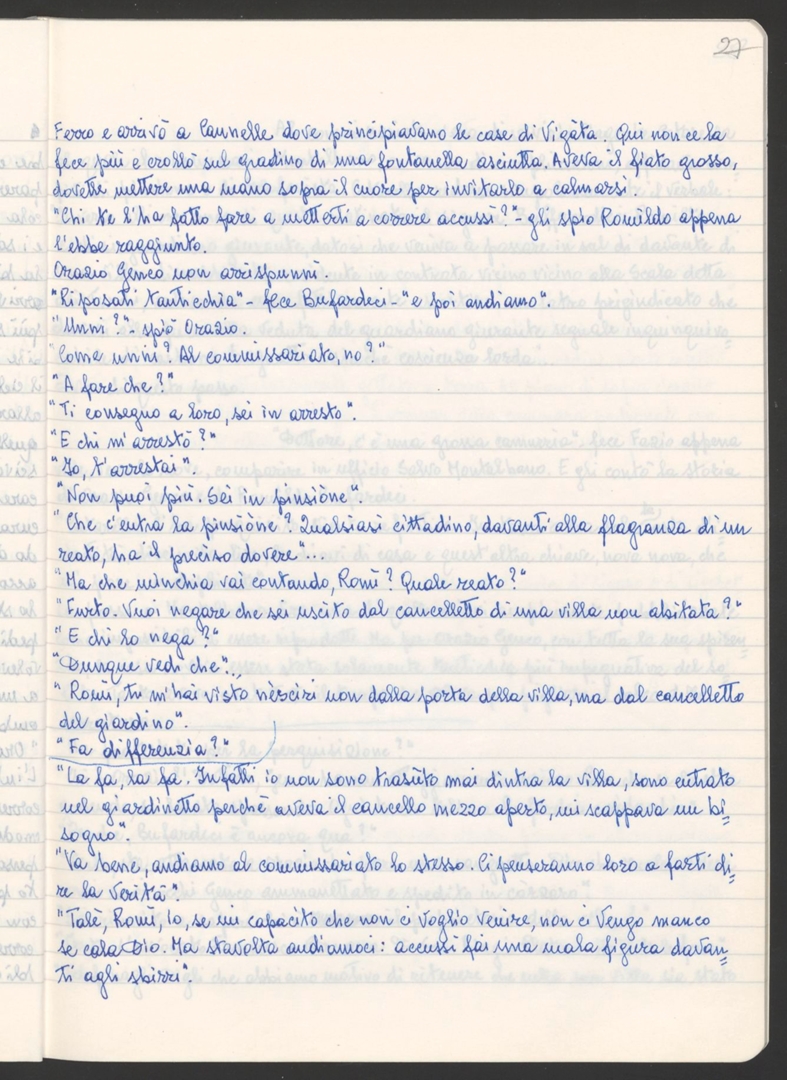 27
Ferro e arrivò a Cannelle dove principiavano le case di Vigàta. Qui non ce la
fece più e crollò sul gradino di una fontanella asciutta. Aveva il fiato grosso,
dovette mettere una mano sopra il cuore per invitarlo a calmarsi.
"Chi te l'ha fatto fare a metterti a correre accussì?" - gli spiò Romildo appena
l'ebbe raggiunto.
Orazio Genco non arrispunnì.
"Riposati tanticchia" - fece Bufardeci - "e poi andiamo".
"Unni?" - spiò Orazio.
"Come unni? Al commissariato, no?"
"A fare che?"
"Ti consegno a loro, sei in arresto".
"E chi m'arrestò?"
"Io, t'arrestai".
"Non puoi più. Sei in pinsiòne".
"Che c'entra la pinsiòne? Qualsiasi cittadino, davanti alla flagranza di un
reato, ha il preciso dovere"...
"Ma che minchia vai contando, Romì? Quale reato?"
"Furto. Vuoi negare che sei uscito dal cancelletto di una villa non abitata?"
"E chi lo nega?"
"Dunque vedi che"...
"Romì, tu m'hai visto nèsciri non dalla porta della villa, ma dal cancelletto
del giardino".
"Fa differenzia?"
"La fa, la fa. Infatti io non sono trasuto mai dintra la villa, sono entrato
nel giardinetto perchè aveva il cancello mezzo aperto, mi scappava un bi=
sogno".
"Va bene, andiamo al commissariato lo stesso. Ci penseranno loro a farti di=
re la verità".
"Talè, Romì, io, se mi capacito che non ci voglio venire, non ci vengo manco
se cala Dio. Ma stavolta andiamoci: accussì fai una mala figura davan=
ti agli sbirri".